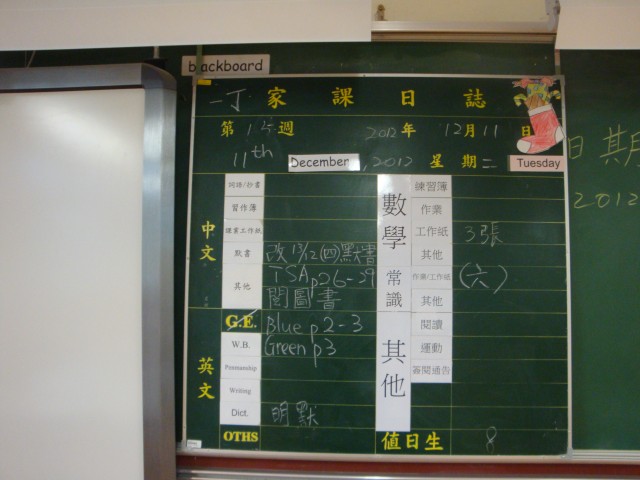 blackboard
一丁 家課日誌
第15週 2012年 12月11日
11th December, 2012 星期二 Tuesday
日期
2012
中文
詞語/抄書
習作簿
課業工作紙
默書 改13/12(四)默書
其他 TSA p26-29
閱圖書
英文
G.E. Blue p2-3
W.B. Green p3
Penmanship
Writing
Dict. 明默
OTHS
數學
練習簿
作業
工作紙 3張
其他
常識
作業/工作紙 (六)
其他
其他
閱讀
運動
簽閱通告
值日生 8